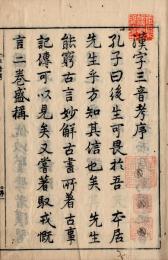 漢字三音考序
孔子曰後生可畏於吾 本居
先生乎方知其信也矣 先生
能窮古言妙解古書所著古事
記傳可以見矣又嘗著馭戎慨
言二巻盛稱